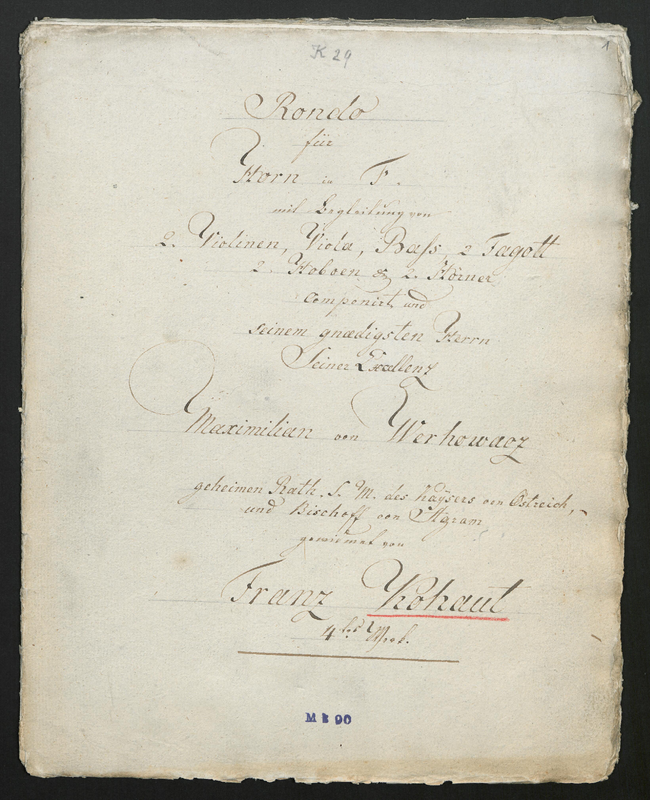 K 29
1
Rondo
für
Horn in F.
mit Begleitung von
2. Violinen, Viola, Bass, 2 Fagott
2. Hoboen & 2. Hörner,
Componirt und
seinem gnædigsten Herrn
Seiner Excellenz
Maximilian von Werhowacz
geheimen Rath S. M. des Kaysers von Östreich,
und Bischoff von Agram
gewidmet von
Franz Kohaut
4tes
M 90